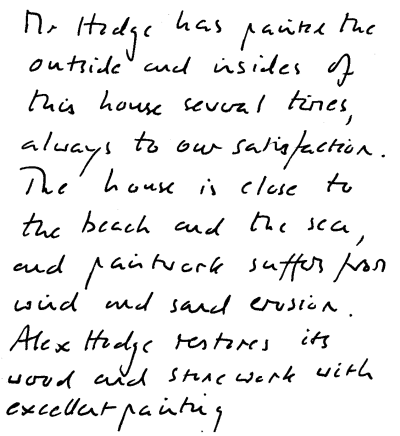 Mr Hodge has painted the
outside and insides of
this house several times,
always to our satisfaction.
The house is close to
the beach and the sea,
and paintwork suffers from
wind and sand erosion.
Alex Hodge restores its
wood and stonework with
excellent painting